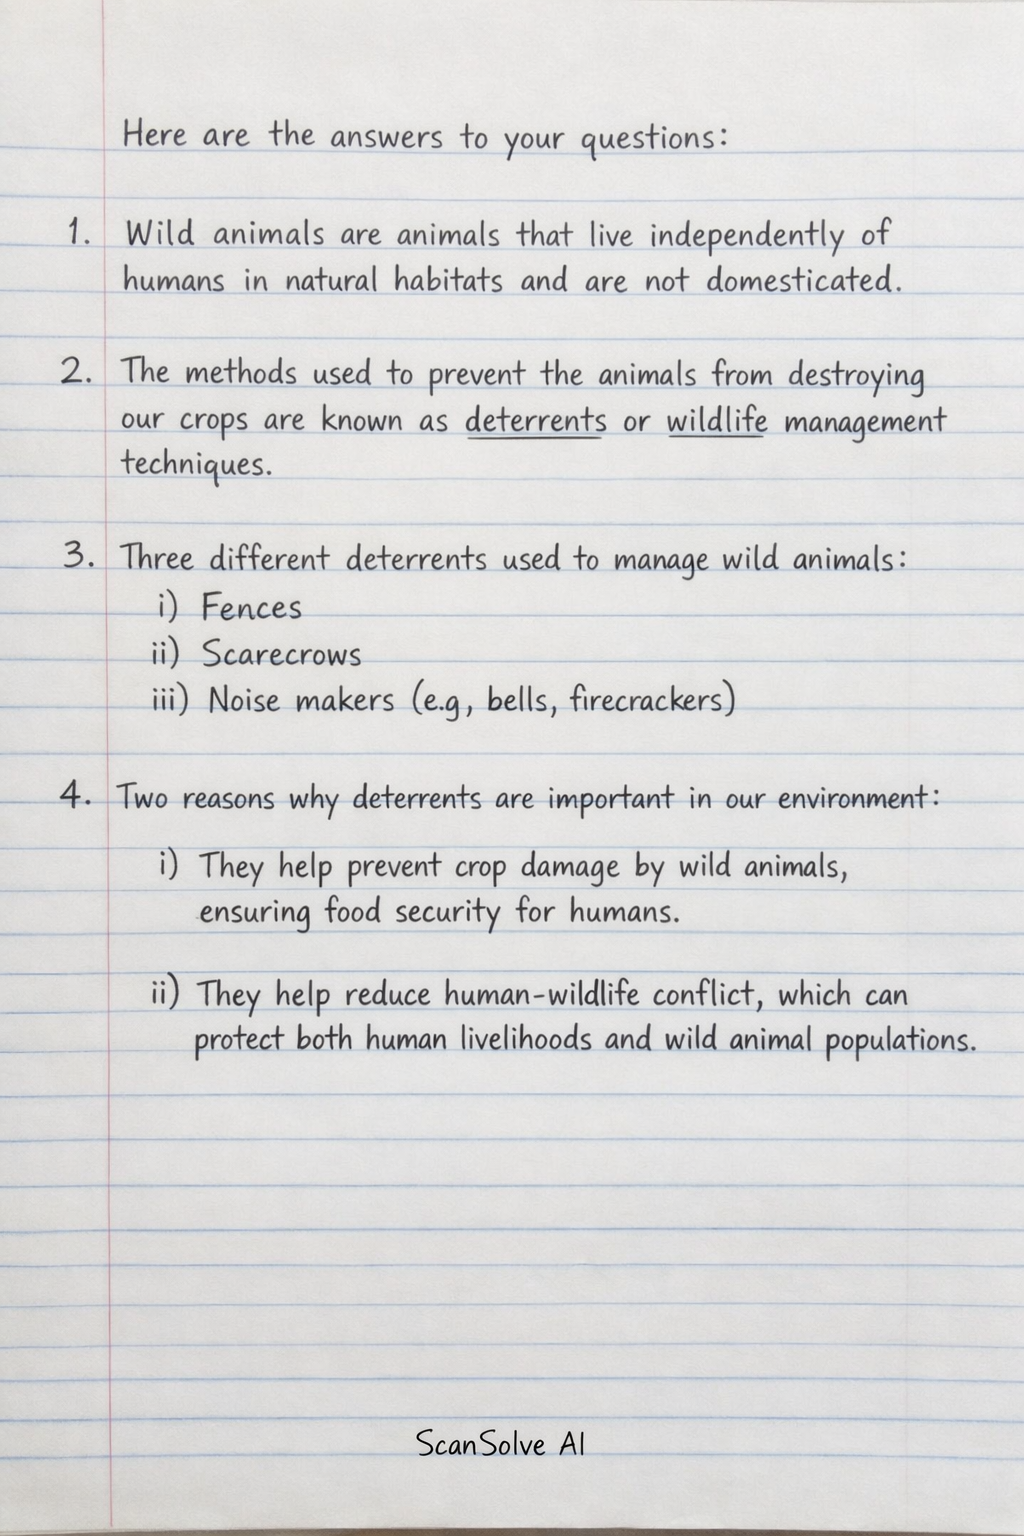 Here are the answers to your questions:
1. Wild animals are animals that live independently of
humans in natural habitats and are not domesticated.
2. The methods used to prevent the animals from destroying
our crops are known as deterrents or wildlife management
techniques.
3. Three different deterrents used to manage wild animals:
i) Fences
ii) Scarecrows
iii) Noise makers (e.g, bells, firecrackers)
4. Two reasons why deterrents are important in our environment:
i) They help prevent crop damage by wild animals,
ensuring food security for humans.
ii) They help reduce human-wildlife conflict, which can
protect both human livelihoods and wild animal populations.
ScanSolve AI